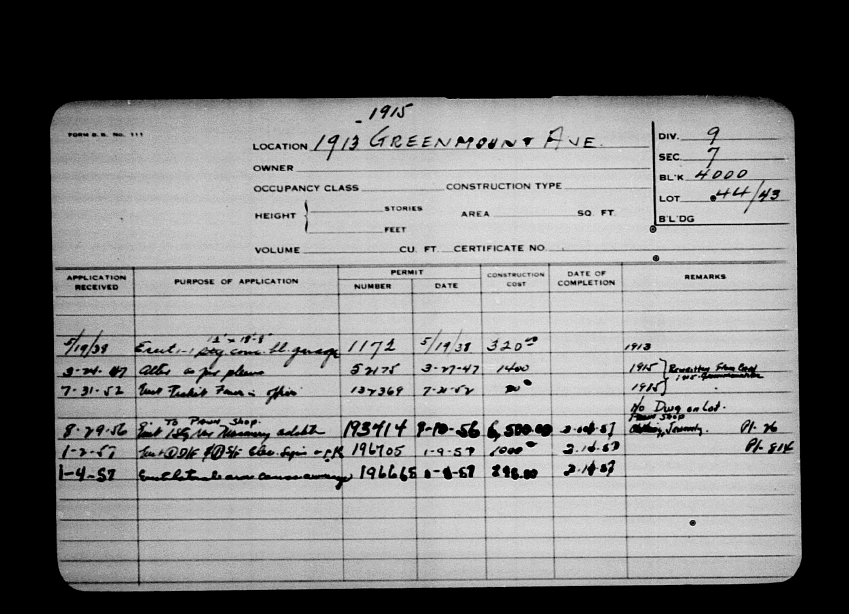 1915
FORM B.B. No. 111
LOCATION 1913 GREENMOUNT AVE.
DIV. 9
OWNER
SEC. 7
OCCUPANCY CLASS CONSTRUCTION TYPE
BL'K 4000
LOT 44/43
HEIGHT STORIES AREA SQ. FT.
FEET
B'L'DG
VOLUME CU. FT. CERTIFICATE NO.
APPLICATION RECEIVED PURPOSE OF APPLICATION PERMIT NUMBER DATE CONSTRUCTION COST DATE OF COMPLETION REMARKS
5/19/38 Erect 1 sty conc. bl. garage 1172 5/19/38 320 1913
3-24-47 Alter as per plans 52175 3-27-47 1400 1915 Rewritten from Card
7-31-52 132369 1915
No Dwg on Lot.
To Pawn Shop
Pawn Shop
8-29-56 1 Sty 193414 9-10-56 6,500.00 2-14-57 Pl. 26
1-2-57 Elec. Sign 196705 1-9-57 2-14-57 Pl. 814
1-4-57 196665 298.00 2-14-57